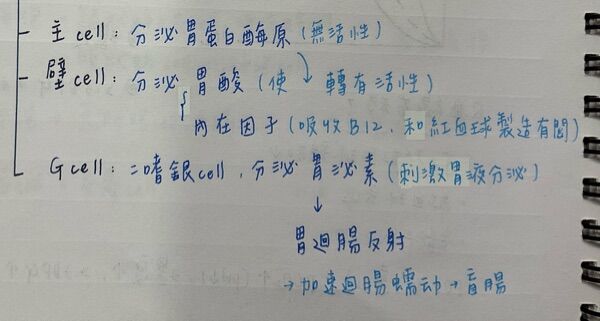 主cell：分泌胃蛋白酶原(無活性)
壁cell：分泌胃酸(使轉有活性)
內在因子(吸收B12，和紅血球製造有關)
Gcell：=嗜銀cell，分泌胃泌素(刺激胃液分泌)
↓
胃迴腸反射
→加速迴腸蠕动→盲腸